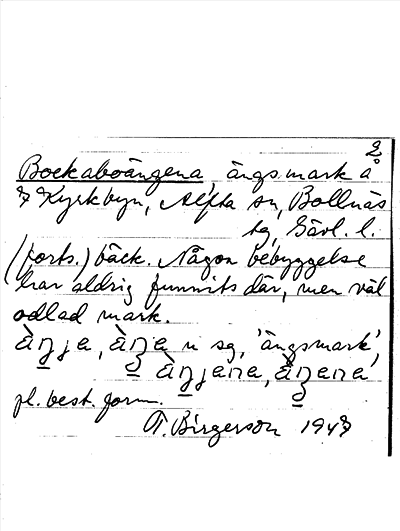 2.
Bockaboängena, ängsmark å
Kyrkbyn, Alfta sn, Bollnäs
tg, Gävl. l.
(forts.) bäck. Någon bebyggelse
har aldrig funnits där, men väl
odlad mark.
n sg, 'ängsmark',
pl. best. form.
T. Birgerson 1947